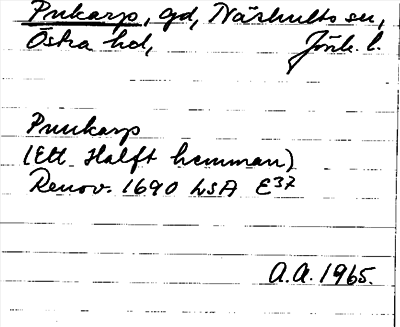 Pukarp, gd, Närhults sn,
Östra hd, Jönk. l.
Puukarp
(Ett Halft hemman)
Renov. 1690 LSA E37
A.A. 1965.